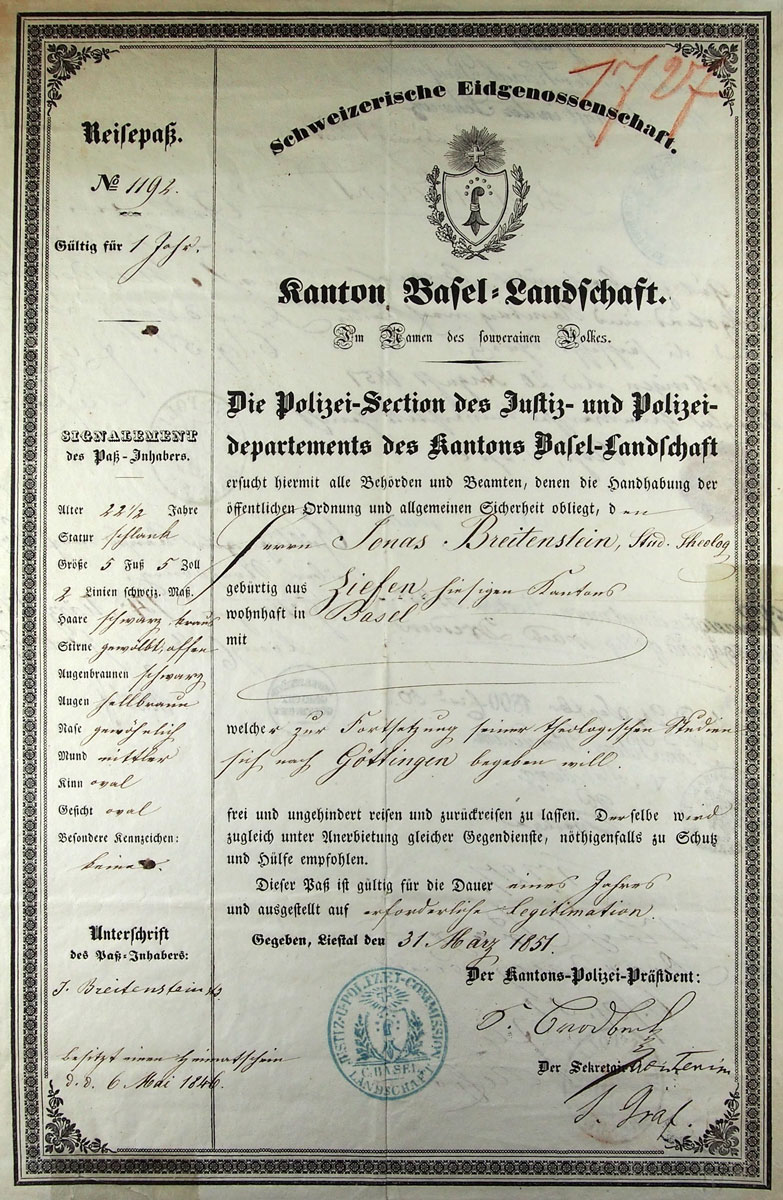 1727
Reisepaß.
No 1192.
Gültig für 1 Jahr.
SIGNALEMENT
des Paß-Inhabers.
Alter 22 1/2 Jahre
Statur schlank
Größe 5 Fuß 5 Zoll
2 Linien schweiz. Maß.
Haare schwarz kraus
Stirne gewölbt, offen
Augenbraunen schwarz
Augen hellbraun
Nase gewöhnlich
Mund mittler
Kinn oval
Gesicht oval
Besondere Kennzeichen:
keine.
Unterschrift
des Paß-Inhabers:
J. Breitenstein
besitzt einen Heimatschein
d.d. 6. Mai 1846.
Schweizerische Eidgenossenschaft.
Kanton Basel-Landschaft.
Im Namen des souverainen Volkes.
Die Polizei-Section des Justiz- und Polizei-
departements des Kantons Basel-Landschaft
ersucht hiermit alle Behörden und Beamten, denen die Handhabung der
öffentlichen Ordnung und allgemeinen Sicherheit obliegt, den
Herrn Jonas Breitenstein, Stud. Theolog
gebürtig aus Ziefen, hiesigen Kantons
wohnhaft in Basel
mit
welcher zur Fortsetzung seiner theologischen Studien
sich nach Göttingen begeben will.
frei und ungehindert reisen und zurückreisen zu lassen. Derselbe wird
zugleich unter Anerbietung gleicher Gegendienste, nöthigenfalls zu Schutz
und Hülfe empfohlen.
Dieser Paß ist gültig für die Dauer eines Jahres
und ausgestellt auf erforderliche Legitimation.
Gegeben, Liestal den 31 März 1851.
Der Kantons-Polizei-Präsident:
Der Sekretair
J. Graf.
JUSTIZ-U-POLIZEI-COMMISSION
C. BASEL
LANDSCHAFT